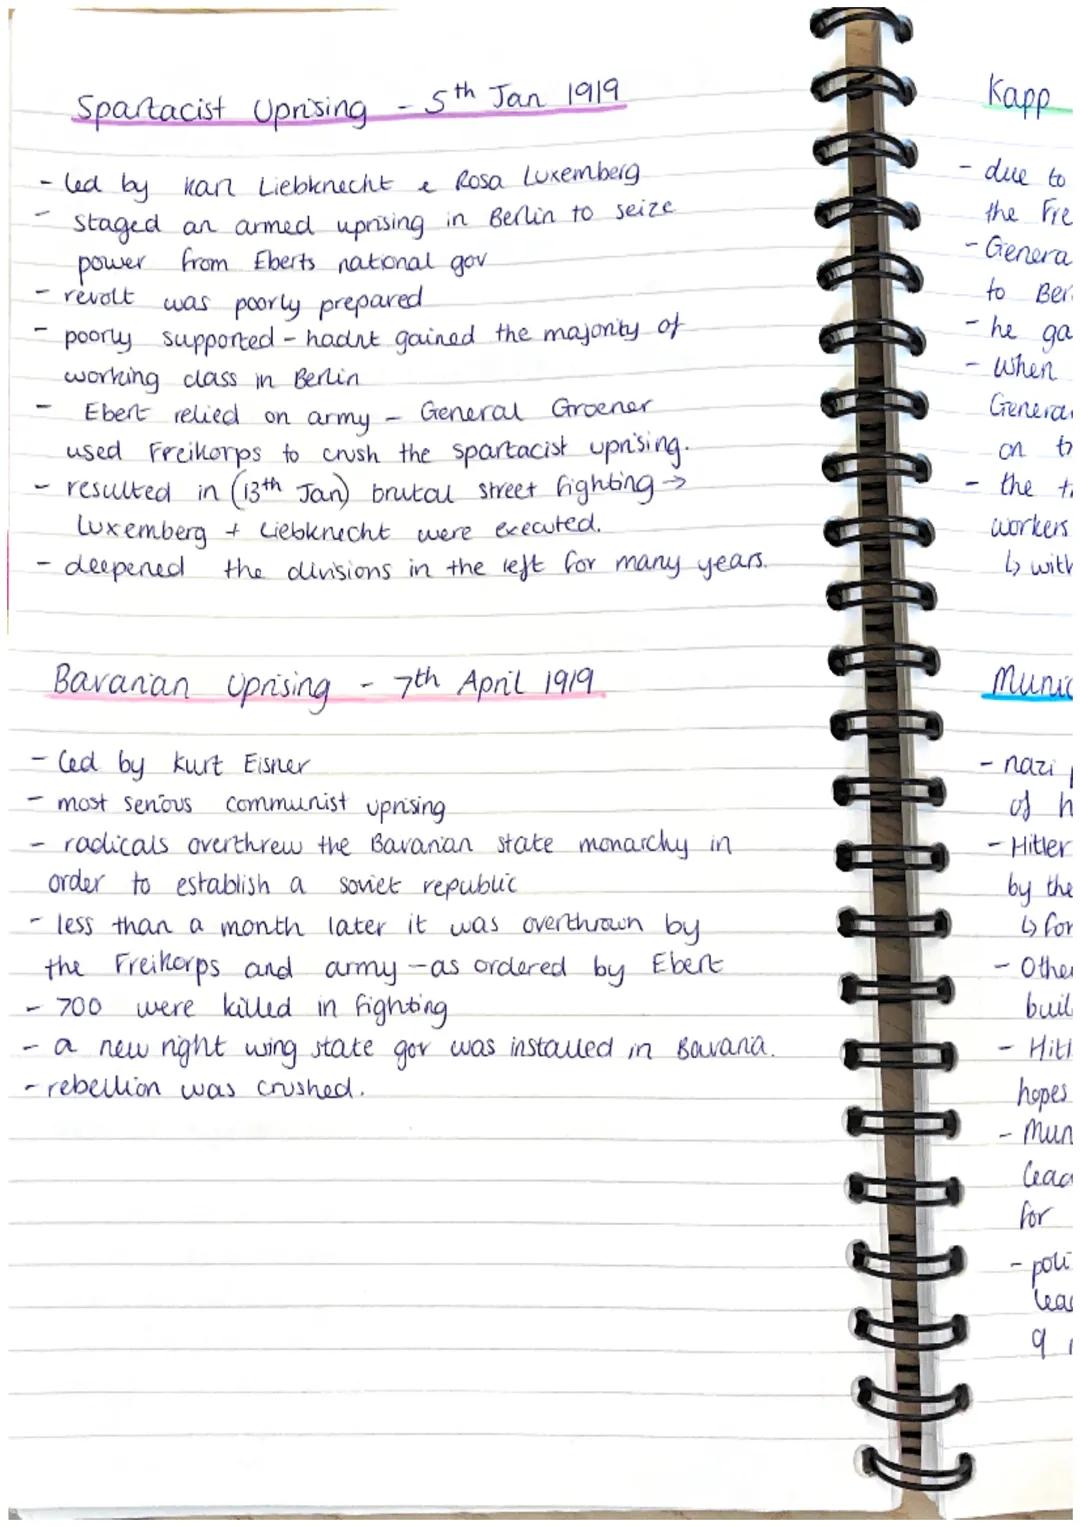 Spartacist Uprising - 5th Jan 1919
- led by Karl Liebknecht & Rosa Luxemberg
- staged an armed uprising in Berlin to seize
power from Eberts national gov
- revolt was poorly prepared
- poorly supported - hadnt gained the majority of
working class in Berlin
- Ebert relied on army - General Groener
used Freikorps to crush the spartacist uprising.
- resulted in (13th Jan) brutal street fighting →
Luxemberg + Liebknecht were executed.
- deepened the divisions in the left for many years.
Bavarian Uprising - 7th April 1919
- led by Kurt Eisner
- most serious communist uprising
- radicals overthrew the Bavarian state monarchy in
order to establish a soviet republic
- less than a month later it was overthrown by
the Freikorps and army - as ordered by Ebert
- 700 were killed in fighting
- a new right wing state gov was installed in Bavaria.
- rebellion was crushed.
Kapp
- due to
the Fre
- Genera
to Ber
- he ga
- when
Genera
on
- the
workers
↳ with
Munic
- nazi
of h
- Hitler
by the
↳ for
- Other
buil
- Hitl
hopes
- Mun
lead
for
- poli
lead
9